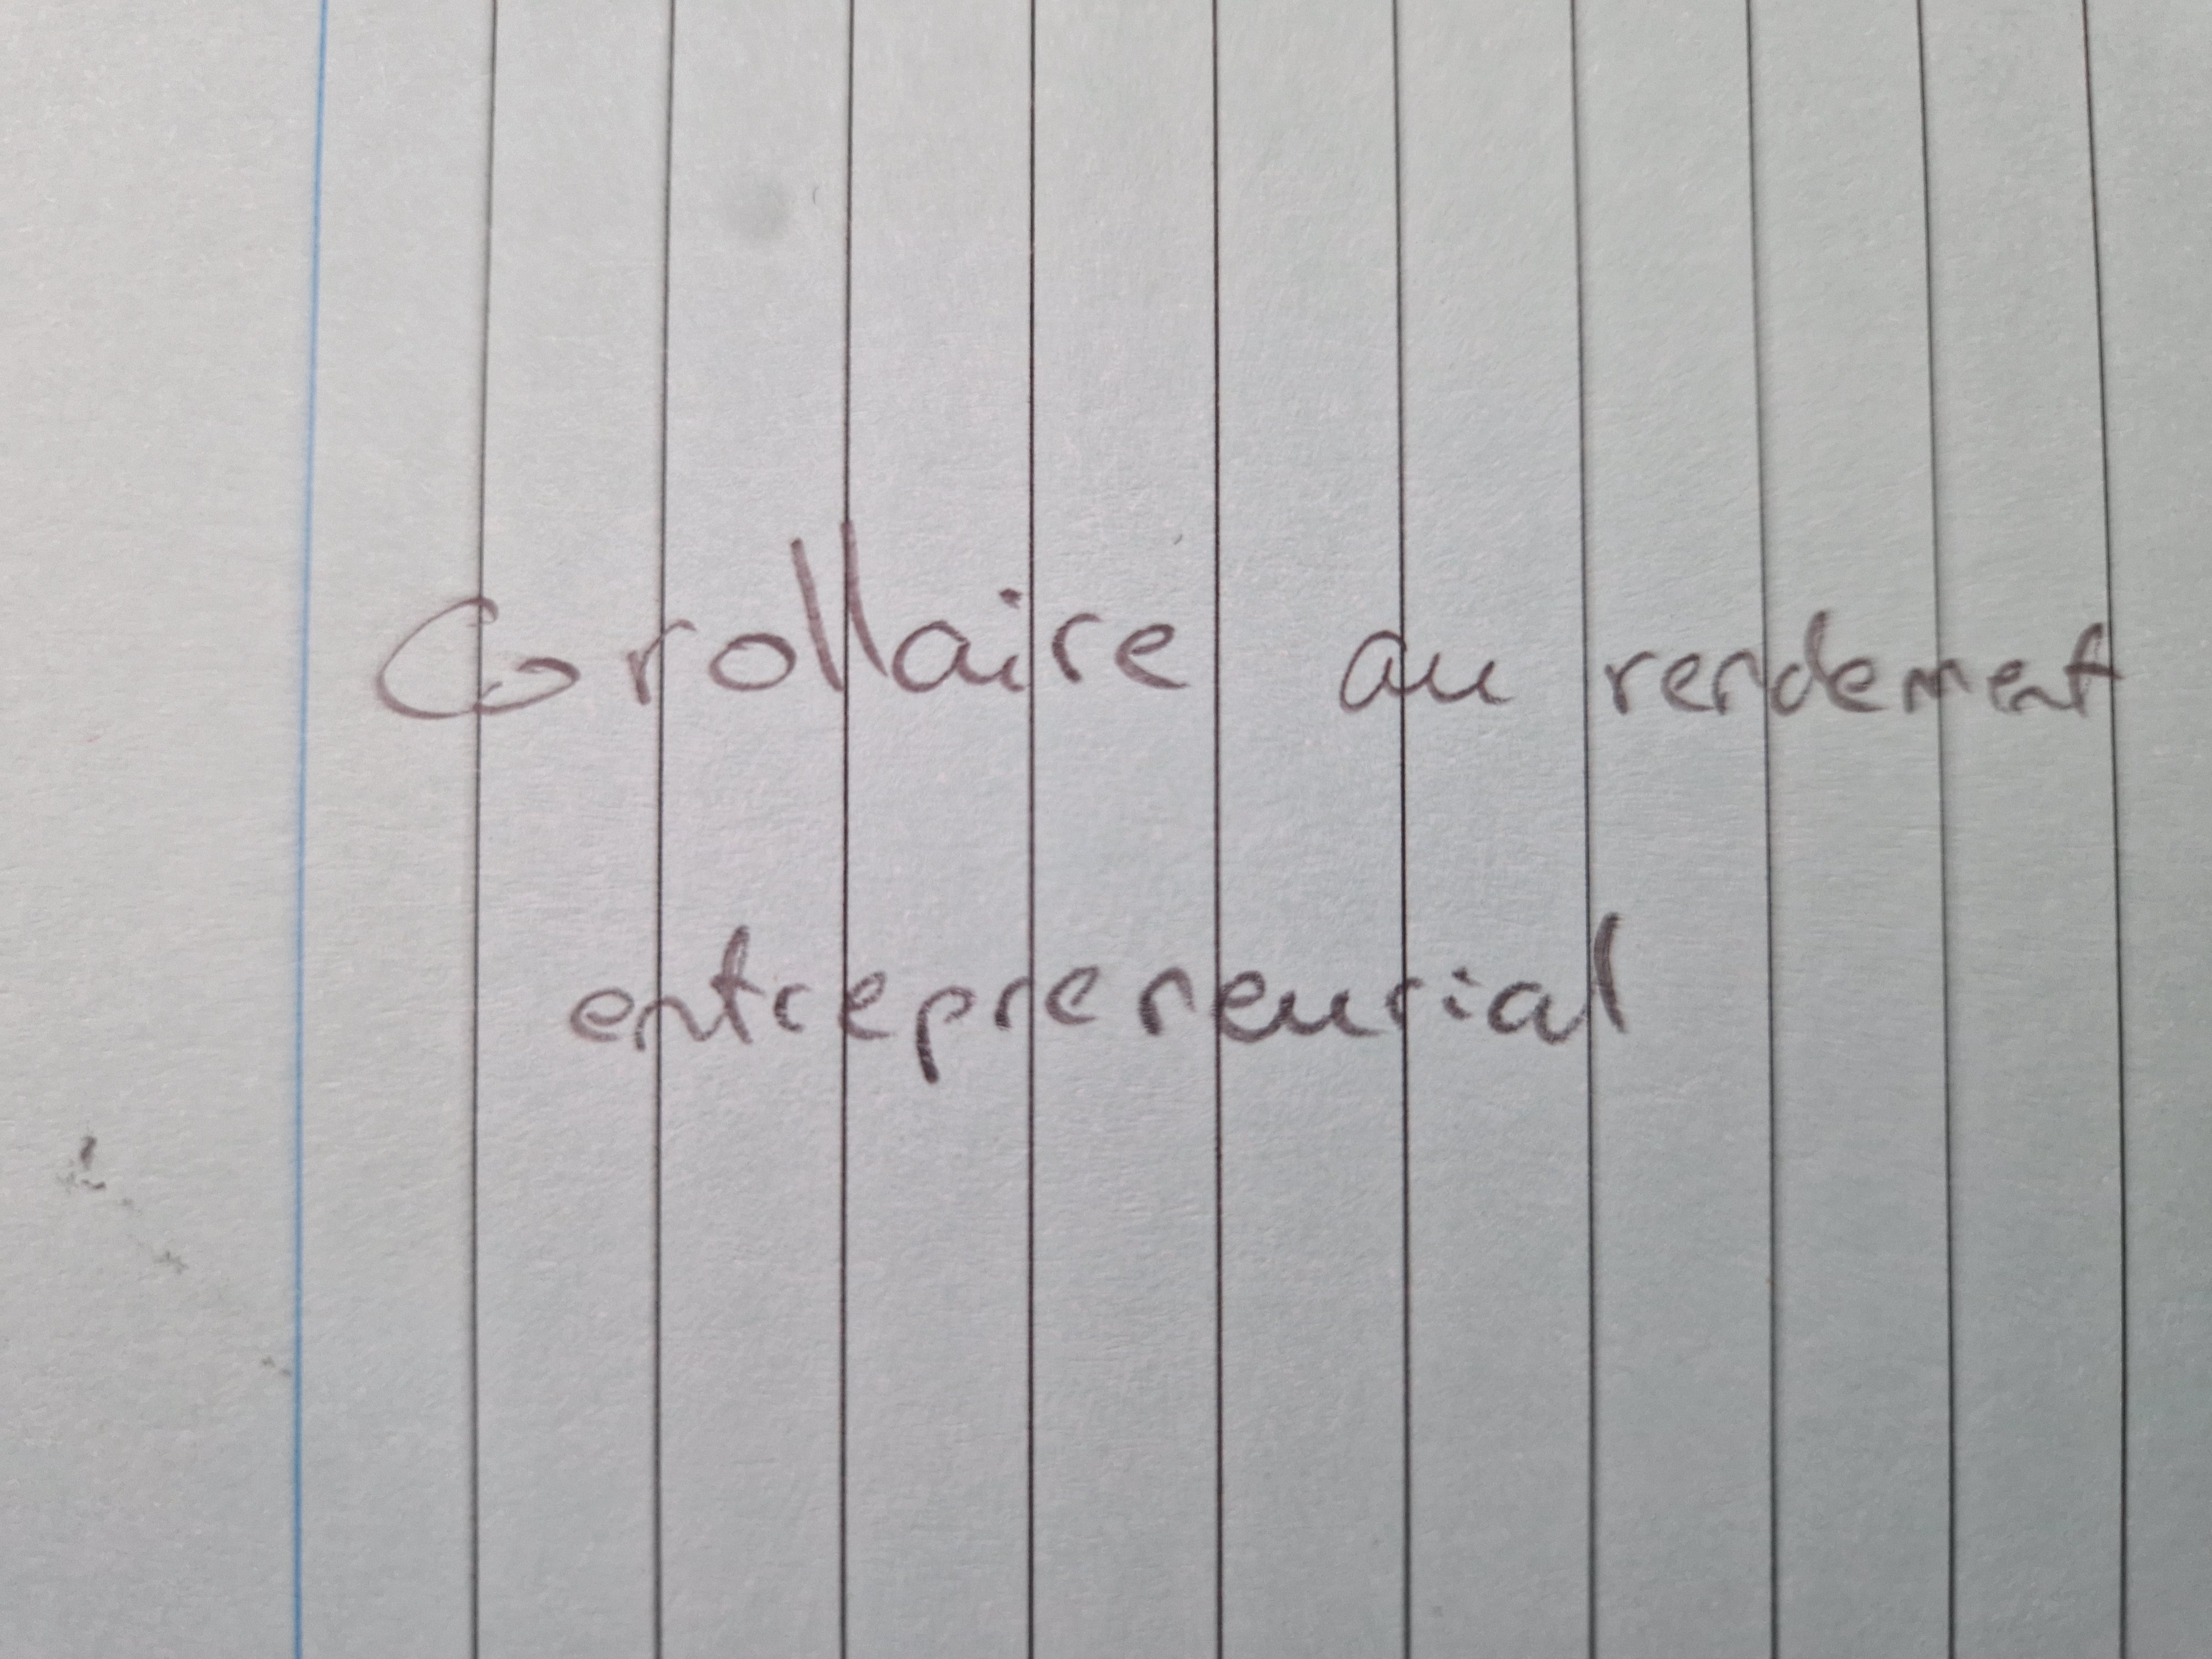 Corollaire au rendement
entrepreneurial